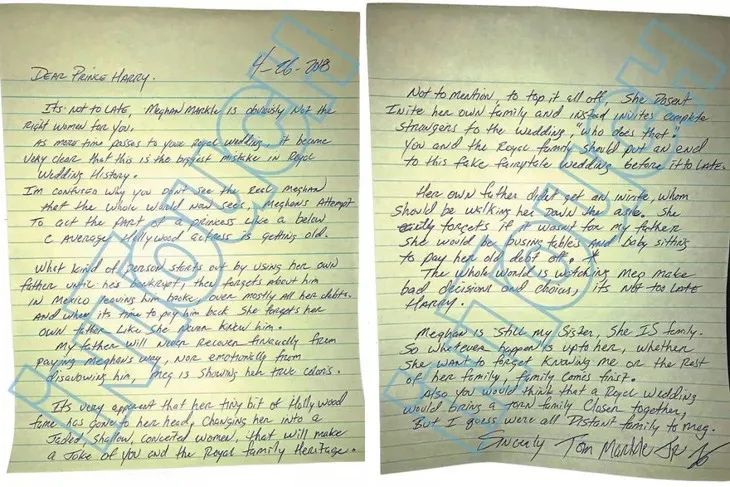 4-26-2018
DEAR PRINCE HARRY.
It's NOT to LATE, Meghan Markle is obviously Not the
Right woman for you.
As more time passes to your Royal wedding, it became
very clear that this is the biggest mistake in Royal
Wedding History.
I'm confused why you don't see the Real Meghan
that the whole world now sees. Meghan's Attempt
To act the part of a princess like a below
C Average Hollywood actress is getting old.
What kind of person starts out by using her own
father until he's bankrupt, then forgets about him
in Mexico leaving him broke, over mostly all her debts.
And when it's time to pay him back she forgets her
own father like she never knew him.
My father will never recover financially from
paying Meghan's way, nor emotionally from
disavowing him, Meg is showing her true colors.
It's very apparent that her tiny bit of Hollywood
fame has gone to her head, changing her into a
Jaded, shallow, conceited women, that will make
a Joke of you and the Royal family Heritage.
Not to mention, to top it all off, She Dosent
Invite her own family and instead invites complete
strangers to the wedding, "who does that"?
You and the Royal family should put an end
to this fake fairytale wedding before it to LATE.
Her own father didn't get an invite, whom
should be walking her Down the asle. She
forgets if it wasn't for my father
she would be busing tables and baby sitting
to pay her old debt off.
The whole world is watching Meg make
bad decisions and choices, its NOT too LATE
HARRY.
Meghan is still my Sister, She IS family.
So whatever happen is up to her, whether
She want to forget Knowing me or the Rest
of her family, family comes first.
Also you would think that a Royal Wedding
would bring a torn family closer together,
But I guess were all Distant family to Meg.
Sincerly Tom Markle Jr
INTOUCH
INTOUCH